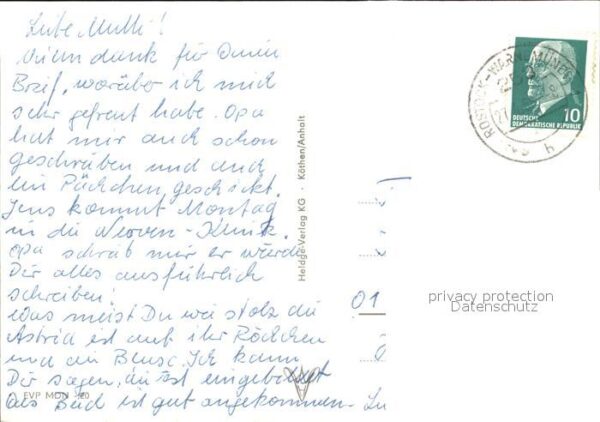 Liebe Mutti!
Vielen Dank für Deinen
Brief, worüber ich mich
sehr gefreut habe. Opa
hat mir auch schon
geschrieben und auch
ein Päckchen geschickt.
Jens kommt Montag
in die Nerven-Klinik.
Opa schrieb mir er würde
Dir alles ausführlich
schreiben!
Was meist Du wie stolz die
Astrid ist auf ihr Röckchen
und die Bluse. Ich kann
Dir sagen, die ist eingebildet
Das Beid ist gut angekommen.
EVP MDN -,20
Heldge-Verlag KG · Köthen/Anhalt
ROSTOCK-WARNEMÜNDE
10
DEUTSCHE
DEMOKRATISCHE REPUBLIK
01
privacy protection
Datenschutz